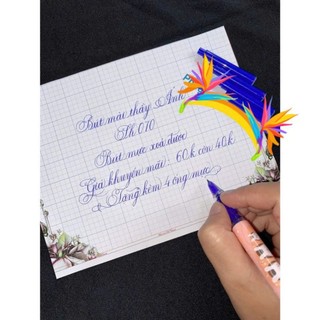 Bút mài thầy Ánh
Sh 010
Bút mực xoá được
Giá khuyến mãi : 60k còn 40k
Tặng kèm 4 ống mực